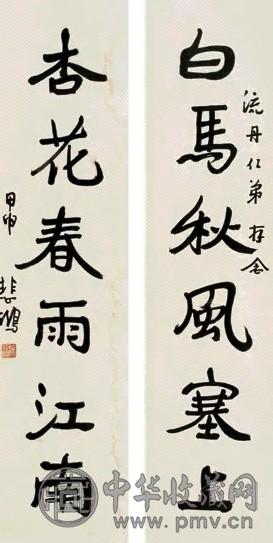 流丹仁弟存念
白馬秋風塞上
杏花春雨江南
甲申
悲鴻
中华收藏网
www.pmv.cn